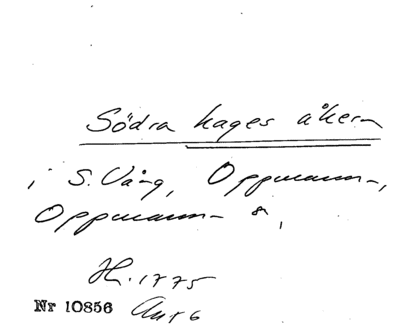 Södra hages åkern
i S. Vång, Oppmanna,
Oppmanna
H. 1775
Nr 10856